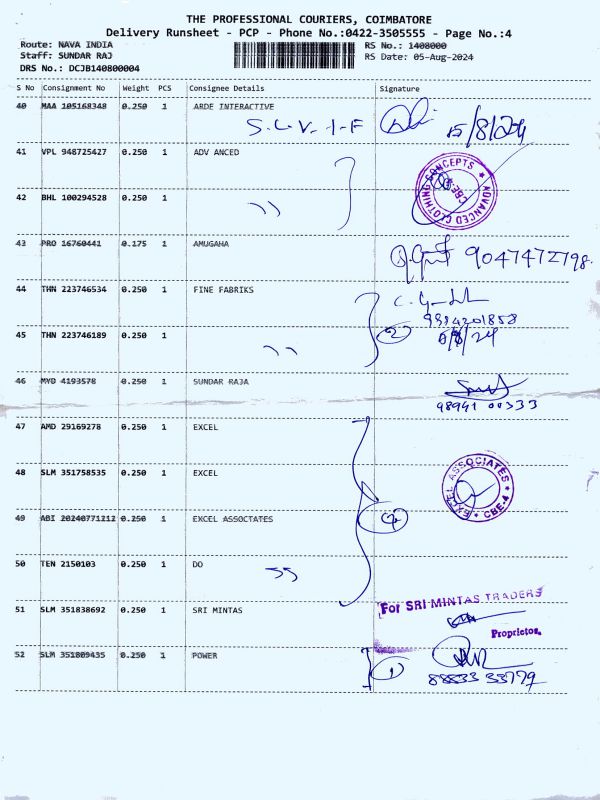 THE PROFESSIONAL COURIERS, COIMBATORE
Delivery Runsheet - PCP - Phone No.:0422-3505555 - Page No.:4
Route: NAVA INDIA
RS No.: 1408000
Staff: SUNDAR RAJ
RS Date: 05-Aug-2024
DRS No.: DCJB140800004
S No Consignment No Weight PCS Consignee Details Signature
40 MAA 105168348 0.250 1 ARDE INTERACTIVE
S.L.V.I.F 15/8/24
41 VPL 948725427 0.250 1 ADV ANCED
ADVANCED CLOTHING CONCEPTS
CBE-4
42 BHL 100294528 0.250 1
43 PRO 16760441 0.175 1 AMUGAHA
9047472798
44 THN 223746534 0.250 1 FINE FABRIKS
9994201858
45 THN 223746189 0.250 1
2
46 MYD 4193578 0.250 1 SUNDAR RAJA
98941 00333
47 AMD 29169278 0.250 1 EXCEL
48 SLM 351758535 0.250 1 EXCEL
EXCEL ASSOCIATES
CBE-4
49 ABI 20240771212 0.250 1 EXCEL ASSOCTATES
50 TEN 2150103 0.250 1 DO
51 SLM 351838692 0.250 1 SRI MINTAS
For SRI MINTAS TRADERS
Proprietor
52 SLM 351809435 0.250 1 POWER
1
88833 33779